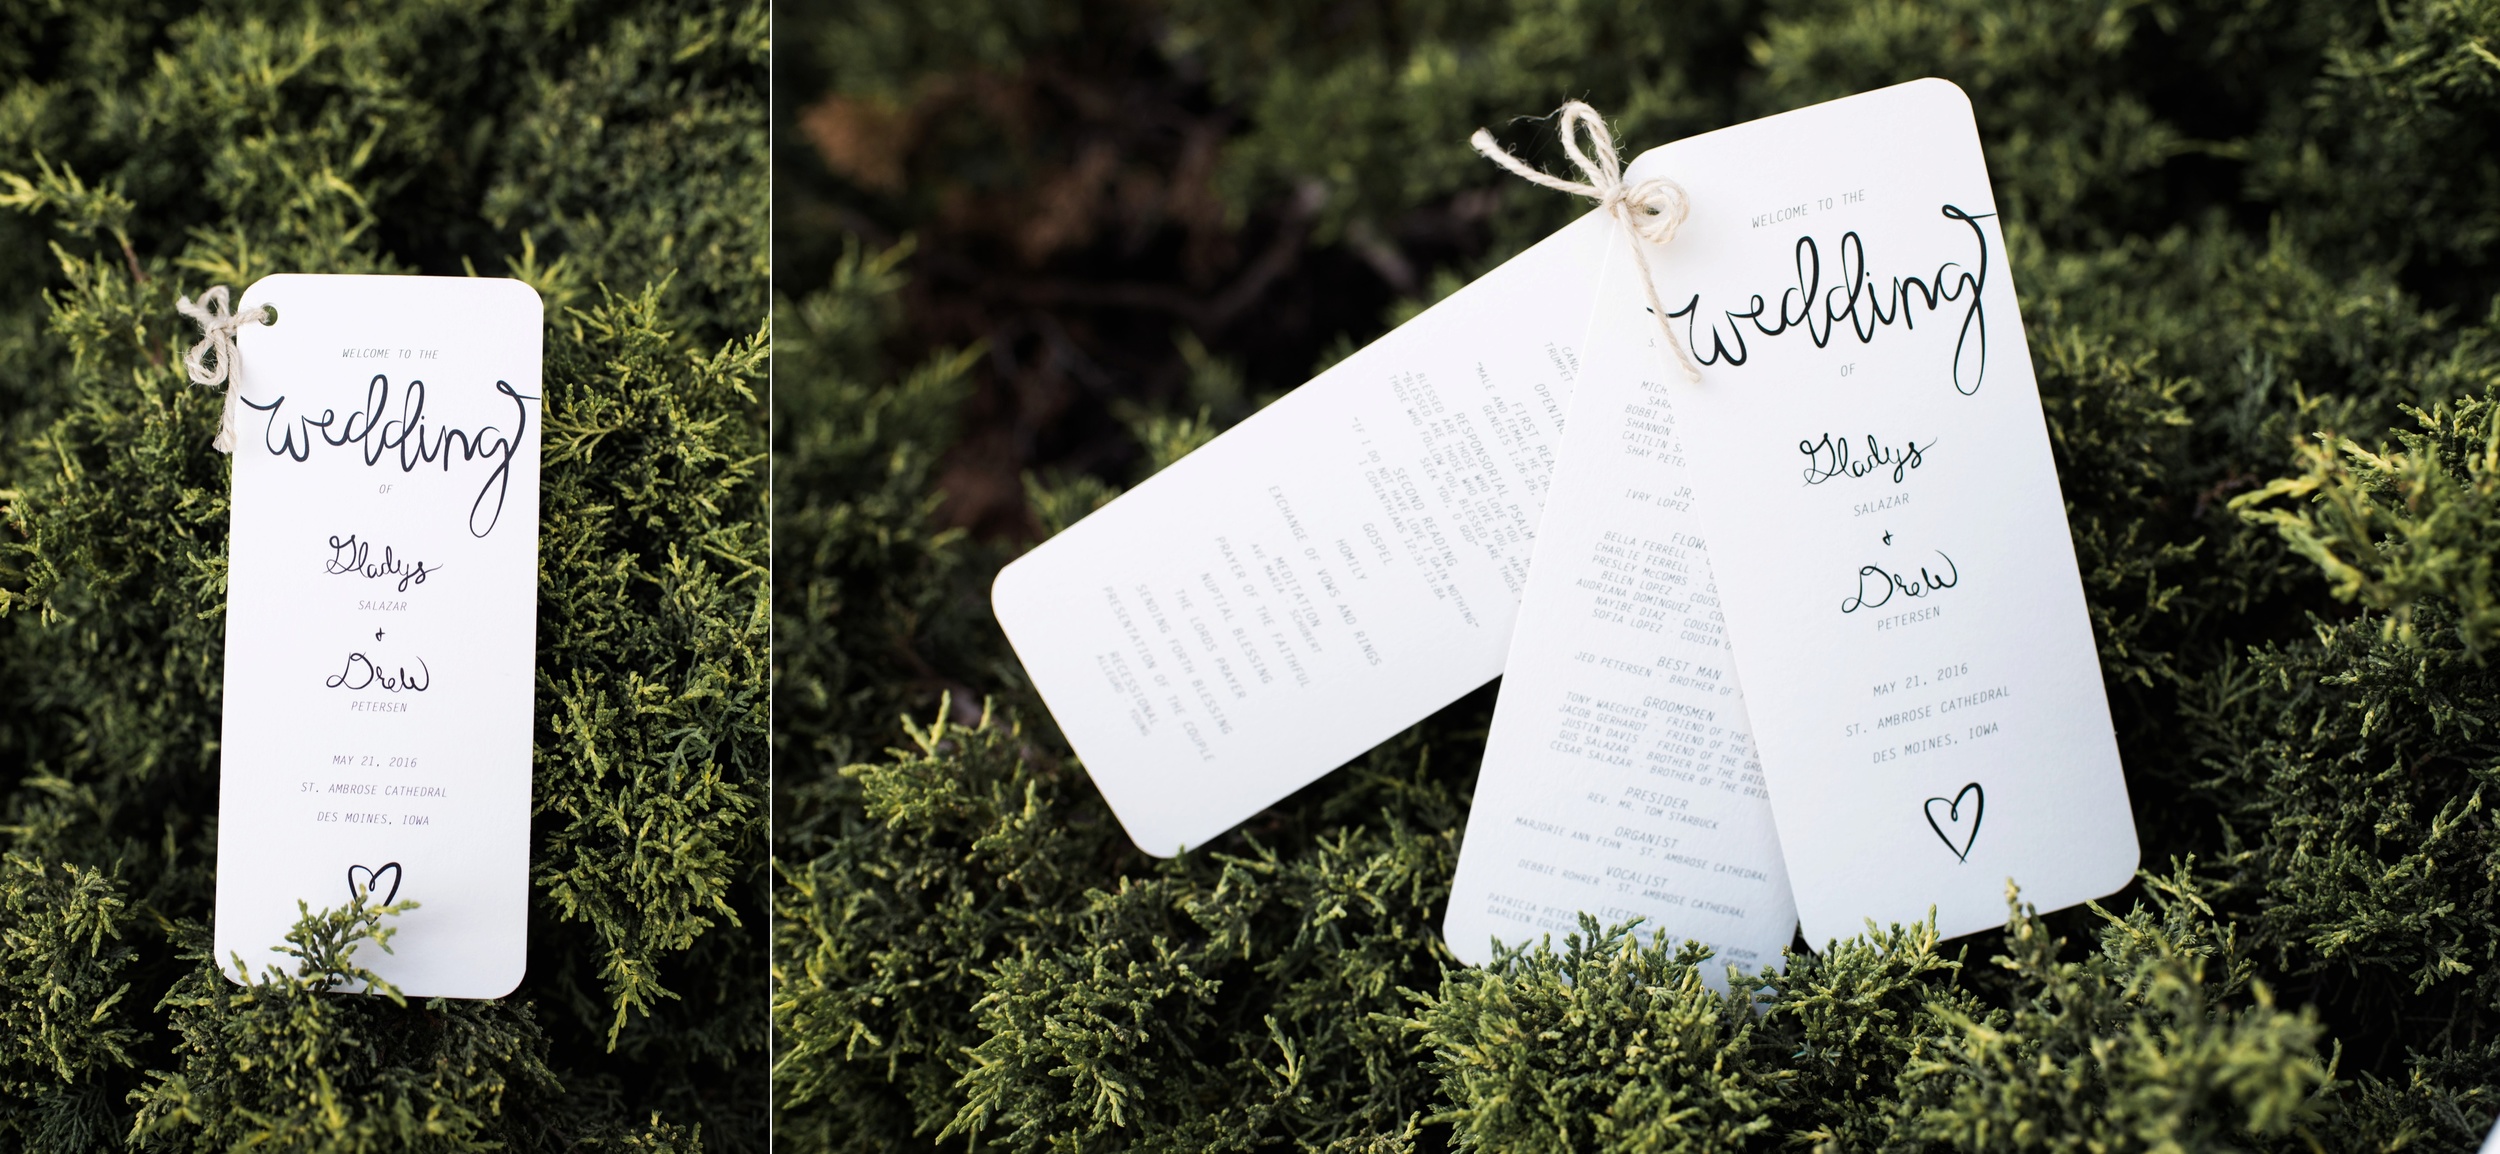 WELCOME TO THE
wedding
OF
Gladys
SALAZAR
+
Drew
PETERSEN
MAY 21, 2016
ST. AMBROSE CATHEDRAL
DES MOINES, IOWA
TRUMPET
OPENIN
FIRST REA
"MALE AND FEMALE HE CR
GENESIS 1:26-28,
RESPONSORIAL PSALM
BLESSED ARE THOSE WHO LOVE YOU, HAPP
"BLESSED ARE THOSE WHO LOVE YOU, BLESSED ARE THOSE
THOSE WHO FOLLOW YOU, SEEK YOU, O GOD"
SECOND READING
"IF I DO NOT HAVE LOVE I GAIN NOTHING"
1 CORINTHIANS 12:31-13:8A
GOSPEL
HOMILY
EXCHANGE OF VOWS AND RINGS
MEDITATION
AVE MARIA - SCHUBERT
PRAYER OF THE FAITHFUL
NUPTIAL BLESSING
THE LORDS PRAYER
SENDING FORTH BLESSING
PRESENTATION OF THE COUPLE
RECESSIONAL
ALLEGRO - YOUNG
MICH
SAR
BOBBI J
SHANNON
CAITLIN S
SHAY PETE
JR.
IVRY LOPEZ
FLOW
BELLA FERRELL -
CHARLIE FERRELL -
PRESLEY McCOMBS - COUS
BELEN LOPEZ - COUS
AUDRIANA DOMINGUEZ - CO
NAYIBE DIAZ - COUSIN
SOFIA LOPEZ - COUSIN O
BEST MAN
JED PETERSEN - BROTHER OF T
GROOMSMEN
TONY WAECHTER - FRIEND OF THE
JACOB GERHARDT - FRIEND OF THE G
JUSTIN DAVIS - FRIEND OF THE GRO
GUS SALAZAR - BROTHER OF THE BRID
CESAR SALAZAR - BROTHER OF THE BRID
PRESIDER
REV. MR. TOM STARBUCK
ORGANIST
MARJORIE ANN FEHN - ST. AMBROSE CATHEDRAL
VOCALIST
DEBBIE ROHRER - ST. AMBROSE CATHEDRAL
LECTORS
PATRICIA PETER
THE GROOM
DARLEEN EGLEH
WELCOME TO THE
wedding
OF
Gladys
SALAZAR
+
Drew
PETERSEN
MAY 21, 2016
ST. AMBROSE CATHEDRAL
DES MOINES, IOWA